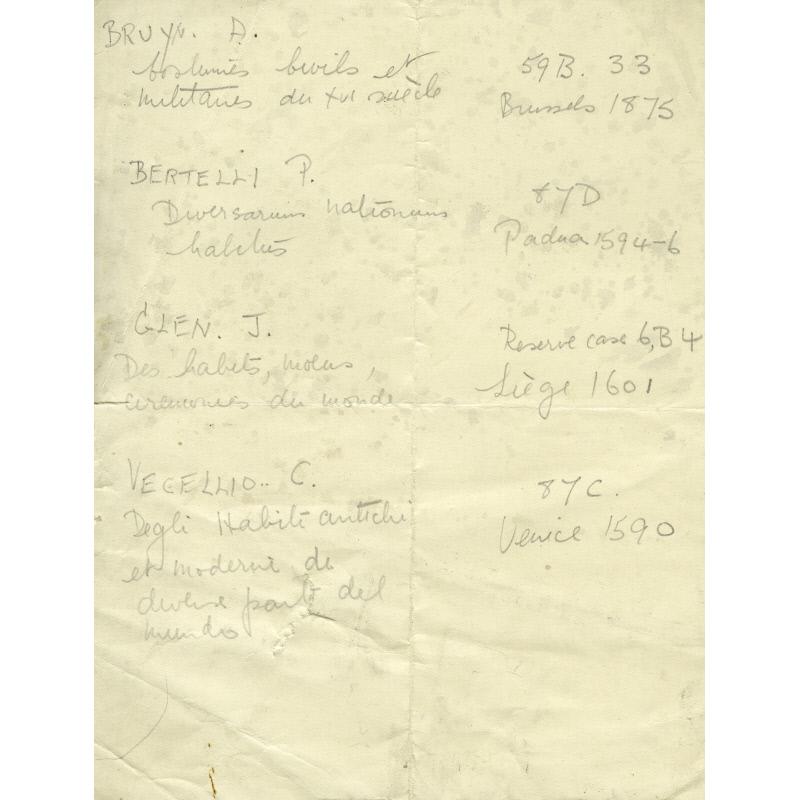 BRUYN. A.
Costumes Civils et 59B. 33
militaires du XVI siècle Brussels 1875
BERTELLI P. 87D
Diversarum nationum
habitus Padua 1594-6
GLEN. J. Reserve case 6, B4
Des habits, moeurs,
ceremonies du monde Liège 1601
VECELLIO. C. 87C.
Degli Habiti antichi Venice 1590
et moderni di
diverse parti del
mundo